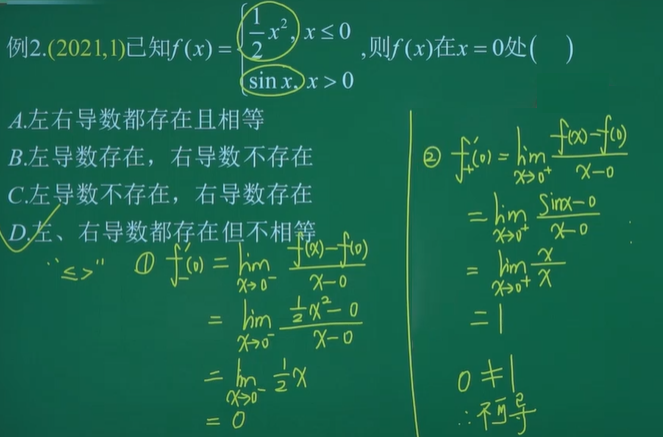 例2.(2021,1)已知f(x)={ 1/2 x², x≤0
sin x, x>0 ,则f(x)在x=0处( )
A.左右导数都存在且相等
B.左导数存在，右导数不存在
C.左导数不存在，右导数存在
D.左、右导数都存在但不相等
"≤>" ① f₋'(0) = lim x→0⁻ (f(x)-f(0))/(x-0)
= lim x→0⁻ (1/2 x²-0)/(x-0)
= lim x→0⁻ 1/2 x
= 0
② f₊'(0) = lim x→0⁺ (f(x)-f(0))/(x-0)
= lim x→0⁺ (sinx-0)/(x-0)
= lim x→0⁺ x/x
= 1
0≠1
∴不可导